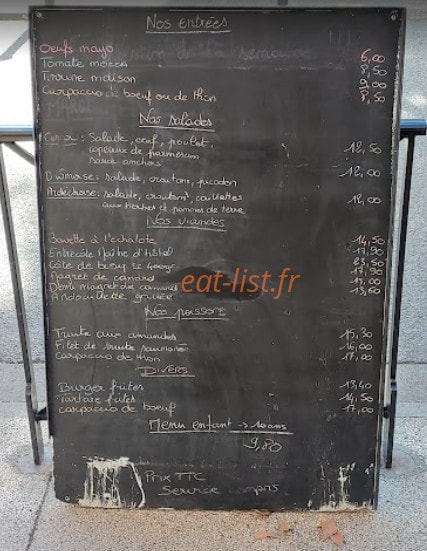 Nos entrées
Oeufs mayo 6,00
Tomate mozza 8,50
Terrine maison 9,00
Carpaccio de boeuf ou de thon 8,50
Nos salades
: Salade, oeuf, poulet, 12,50
copeaux de parmesan
sauce anchois
Drômoise: salade, croutons, picodon 12,00
Ardéchoise: salade, croutons, caillettes 12,00
aux herbes et pommes de terre
Nos viandes
Bavette à l'echalote 14,50
Entrecôte Maître d'hôtel 17,90
Côte de boeuf 23,50
Magret de canard 17,90
Demi magret de canard
Andouillette grillée 13,60
eat-list.fr
Nos poissons
Truite aux amandes 15,30
Filet de truite saumonée 16,00
Carpaccio de thon 17,00
Divers
Burger frites 13,40
Tartare frites 14,50
carpaccio de boeuf 17,00
Menu enfant -> 10 ans
9,80
Prix TTC
Service compris